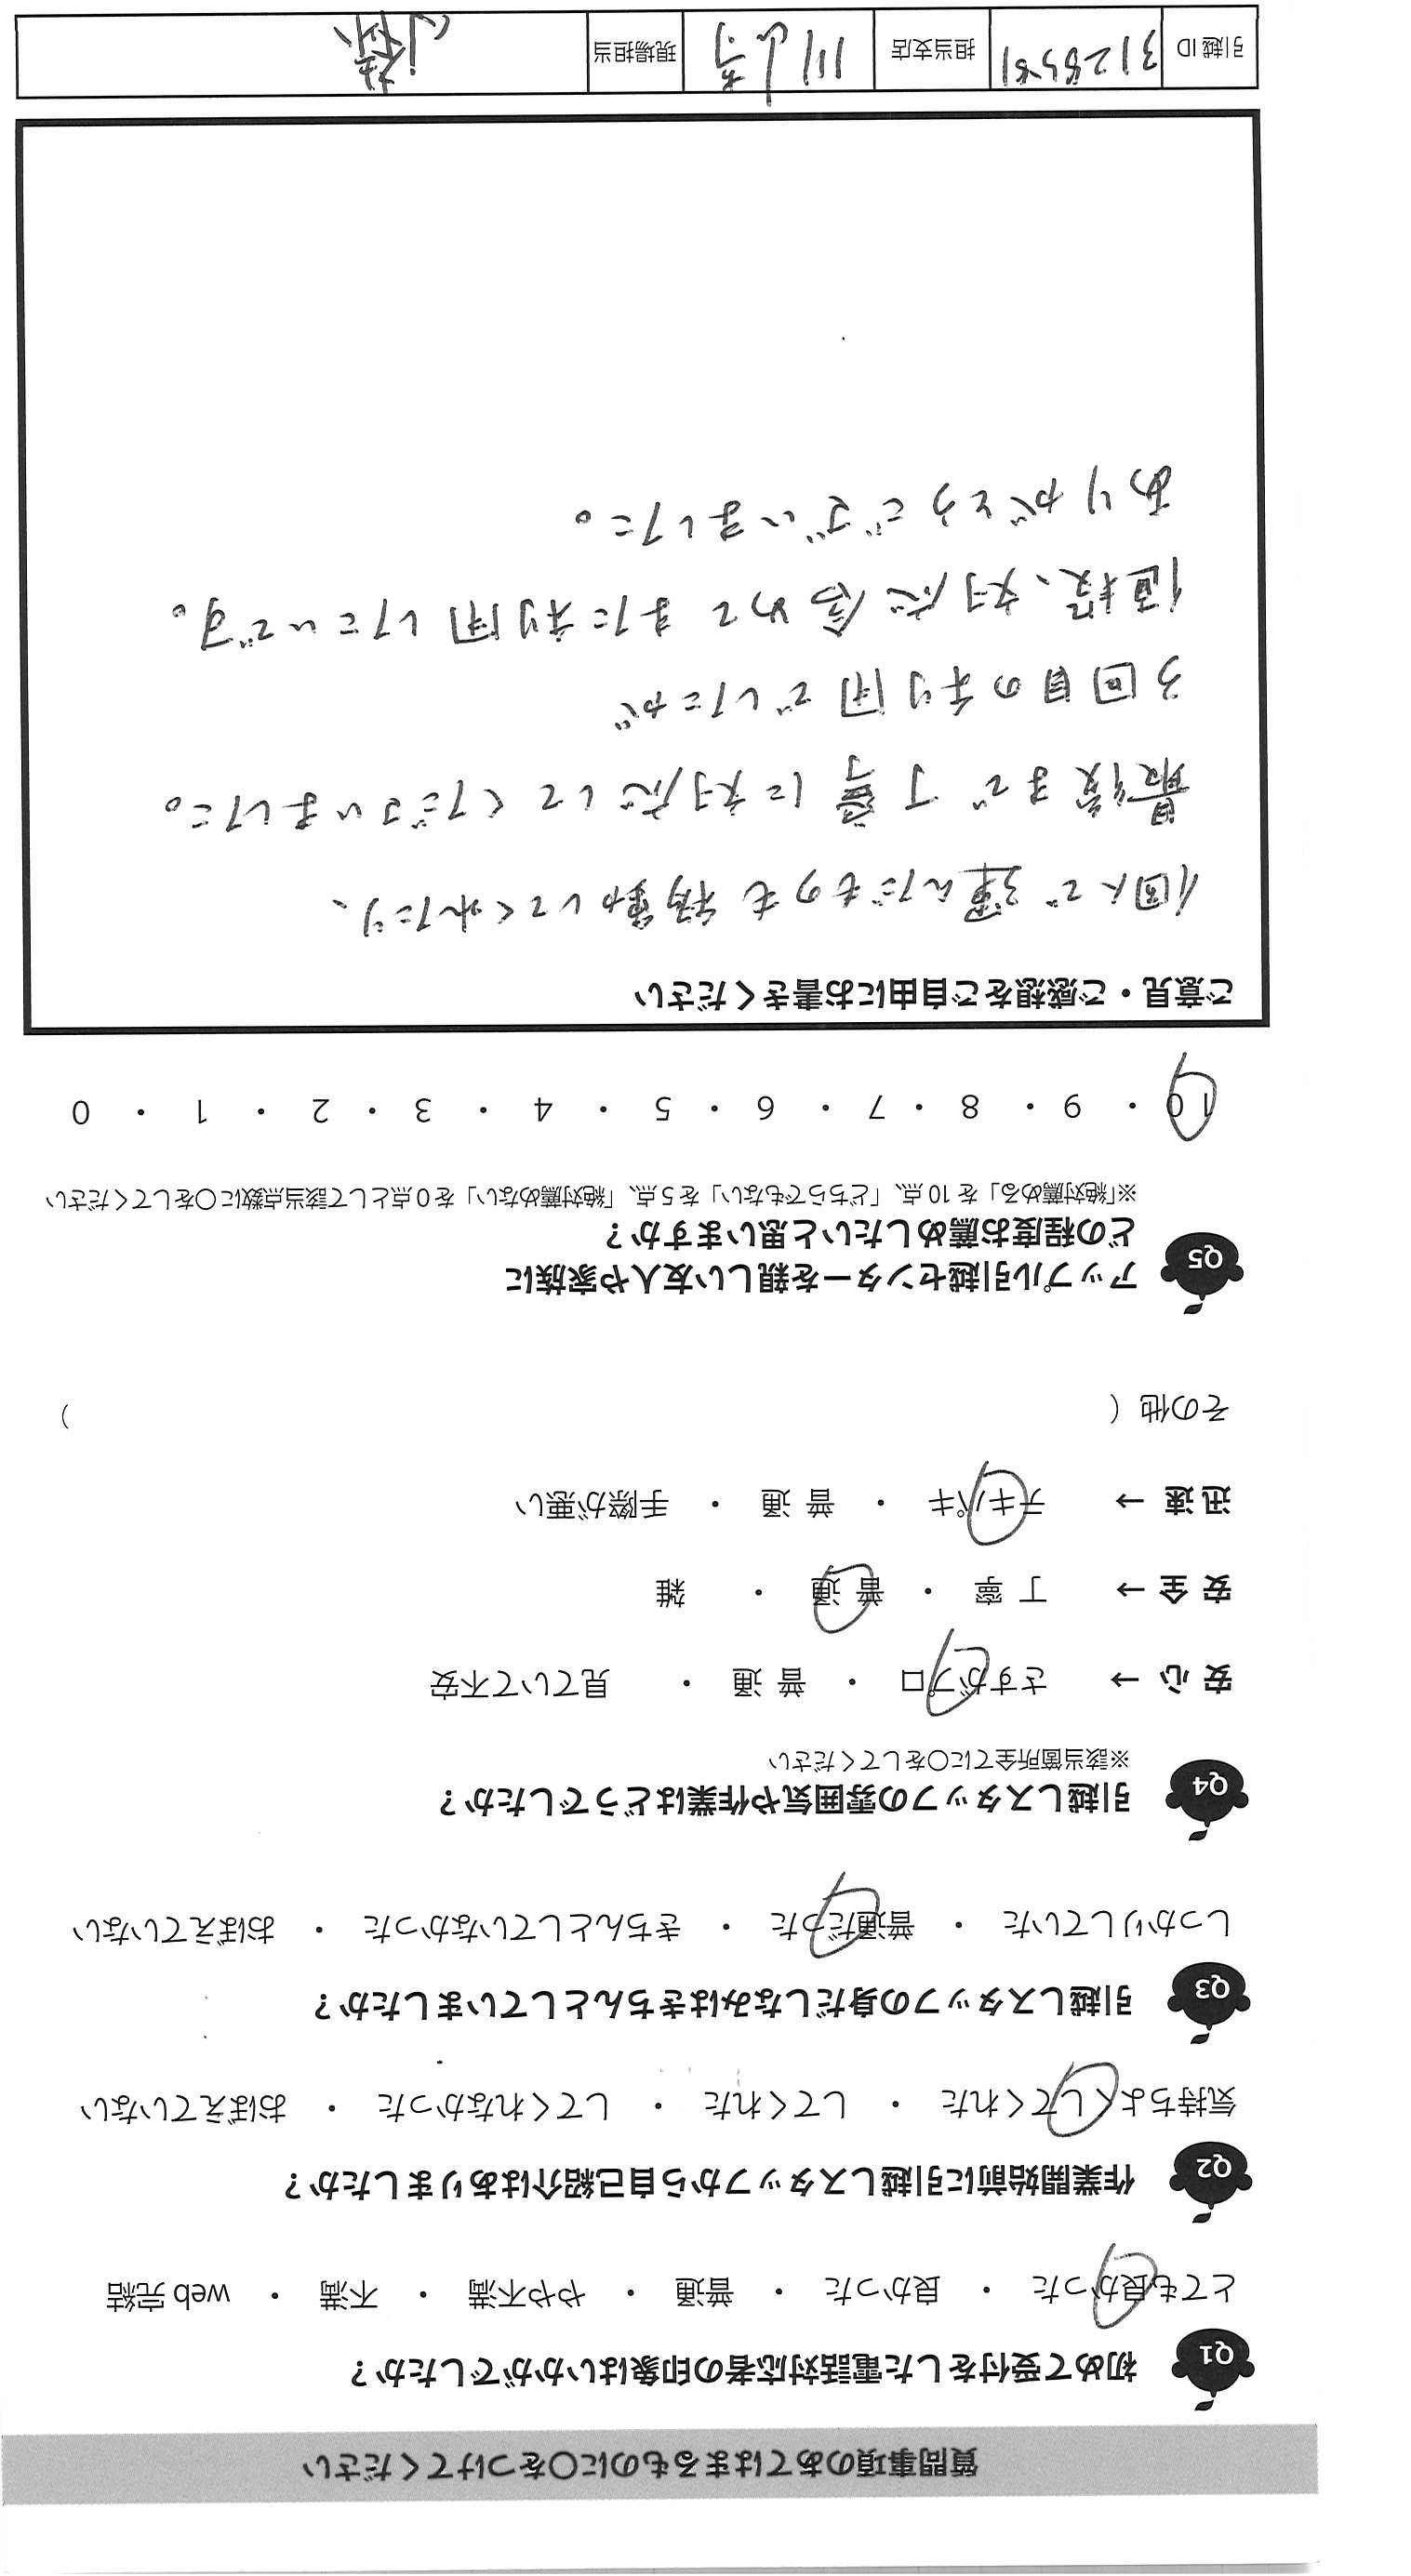 質問事項のあてはまるものに○をつけてください
Q1 初めて受付をした電話対応者の印象はいかがでしたか？
とても良かった ・ 良かった ・ 普通 ・ やや不満 ・ 不満 ・ web 完結
Q2 作業開始前に引越しスタッフから自己紹介はありましたか？
気持ちよくしてくれた ・ してくれた ・ してくれなかった ・ おぼえていない
Q3 引越しスタッフの身だしなみはきちんとしていましたか？
しっかりしていた ・ 普通だった ・ きちんとしていなかった ・ おぼえていない
Q4 引越しスタッフの雰囲気や作業はどうでしたか？
※該当箇所全てに○をしてください
安心 → さすがプロ ・ 普通 ・ 見ていて不安
安全 → 丁寧 ・ 普通 ・ 雑
迅速 → テキパキ ・ 普通 ・ 手際が悪い
その他（ ）
Q5 アップル引越センターを親しい友人や家族に
どの程度お薦めしたいと思いますか？
※「絶対薦める」を 10 点、「どちらでもない」を 5 点、「絶対薦めない」を 0 点として該当点数に○をしてください
10 ・ 9 ・ 8 ・ 7 ・ 6 ・ 5 ・ 4 ・ 3 ・ 2 ・ 1 ・ 0
ご意見・ご感想をご自由にお書きください
個人で運んだものも移動してくれたり、
最後まで丁寧に対応してくださいました。
3回目の利用でしたが
値段、対応含めてまた利用したいです。
ありがとうございました。
引越 ID 担当支店 川崎 現場担当